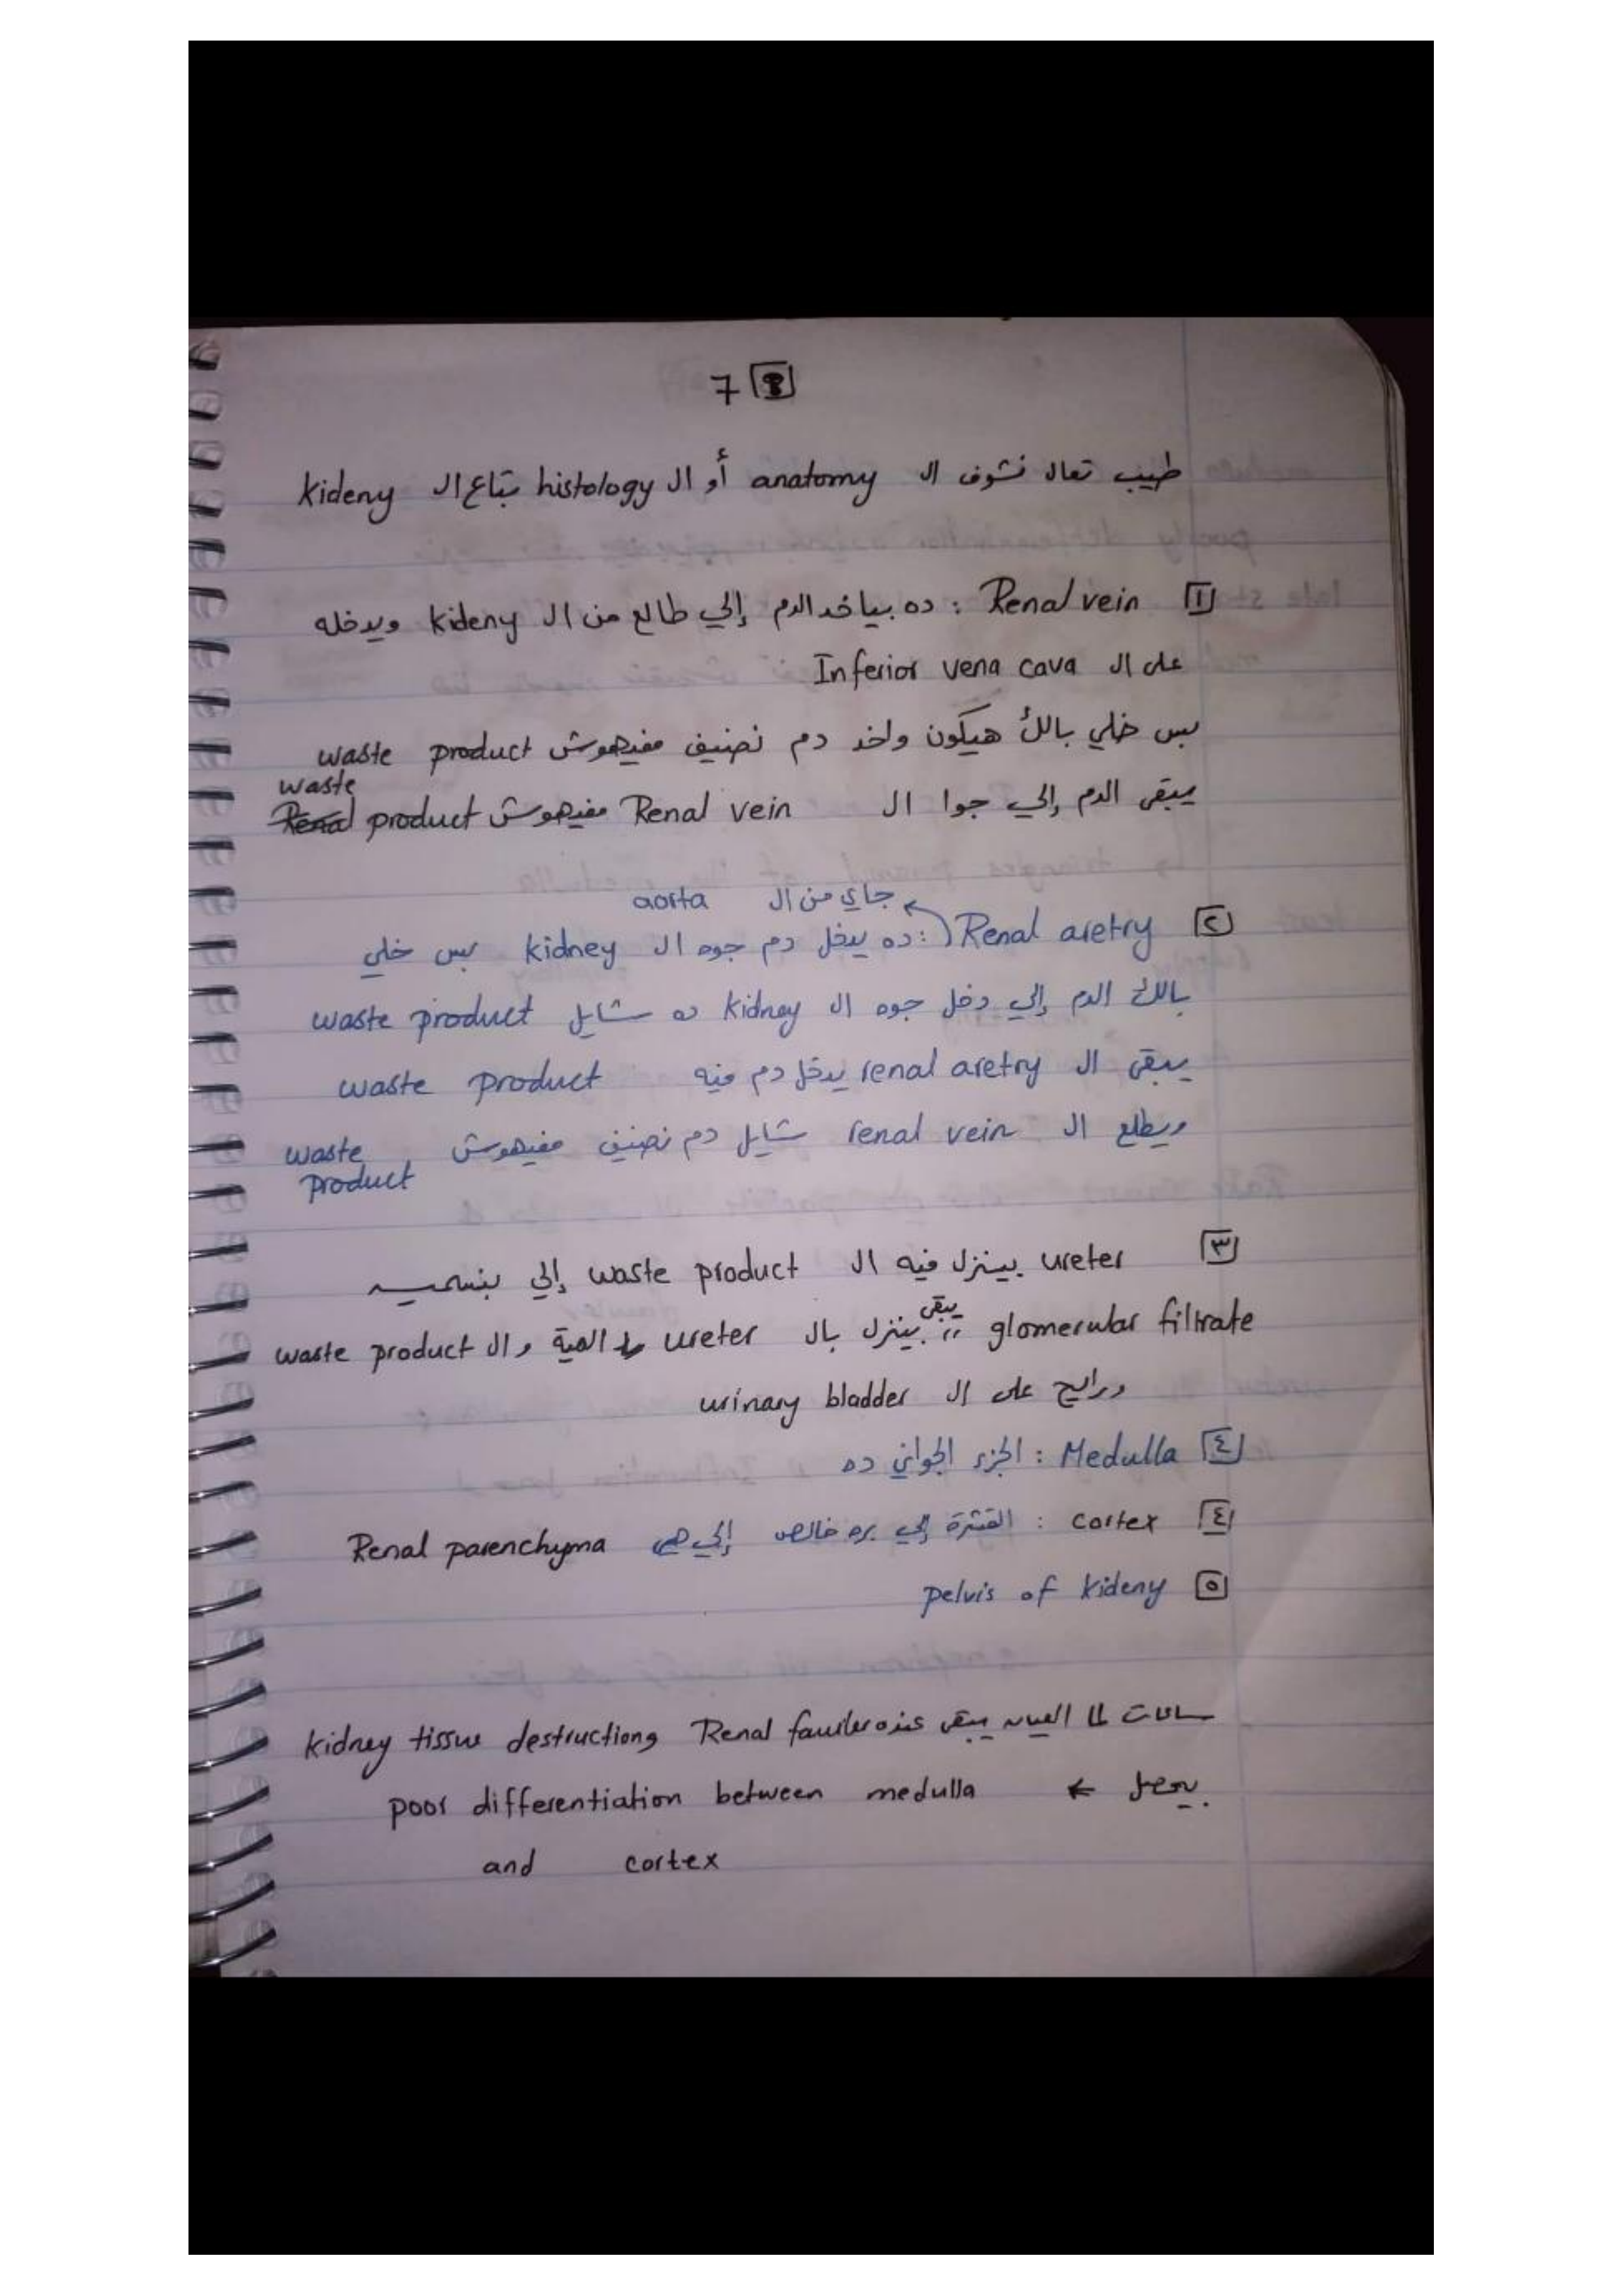 7 8
طيب تعال نشوف ال anatomy أو ال histology بتاع ال kideny
١ Renal vein : ده بياخد الدم إلي طالع من ال kideny ويدخله
على ال Inferior vena cava
بس خلي بالك هيكون واخد دم نضيف مفيهوش waste product
يبقى الدم إلي جوا ال Renal vein مفيهوش waste product
جاي من ال aorta
٢ Renal aretry : ده يدخل دم جوه ال kidney بس خلي
بالك الدم إلي دخل جوه ال kidney ده شايل waste product
يبقى ال renal aretry يدخل دم فيه waste product
ويطلع ال renal vein شايل دم نضيف مفيهوش waste
product
٣ ureter بينزل فيه ال waste product إلي بنسميه
glomerular filtrate يبقى بينزل بال ureter المية وال waste product
ورايح على ال urinary bladder
٤ Medulla : الجزء الجواني ده
٤ cortex : القشرة إلي بره خالص إلي هي Renal parenchyma
٥ pelvis of kideny
ساعات لما العيان يبقى عنده Renal fauiler و kidney tissue destruction
يحصل ← poor differentiation between medulla
and cortex